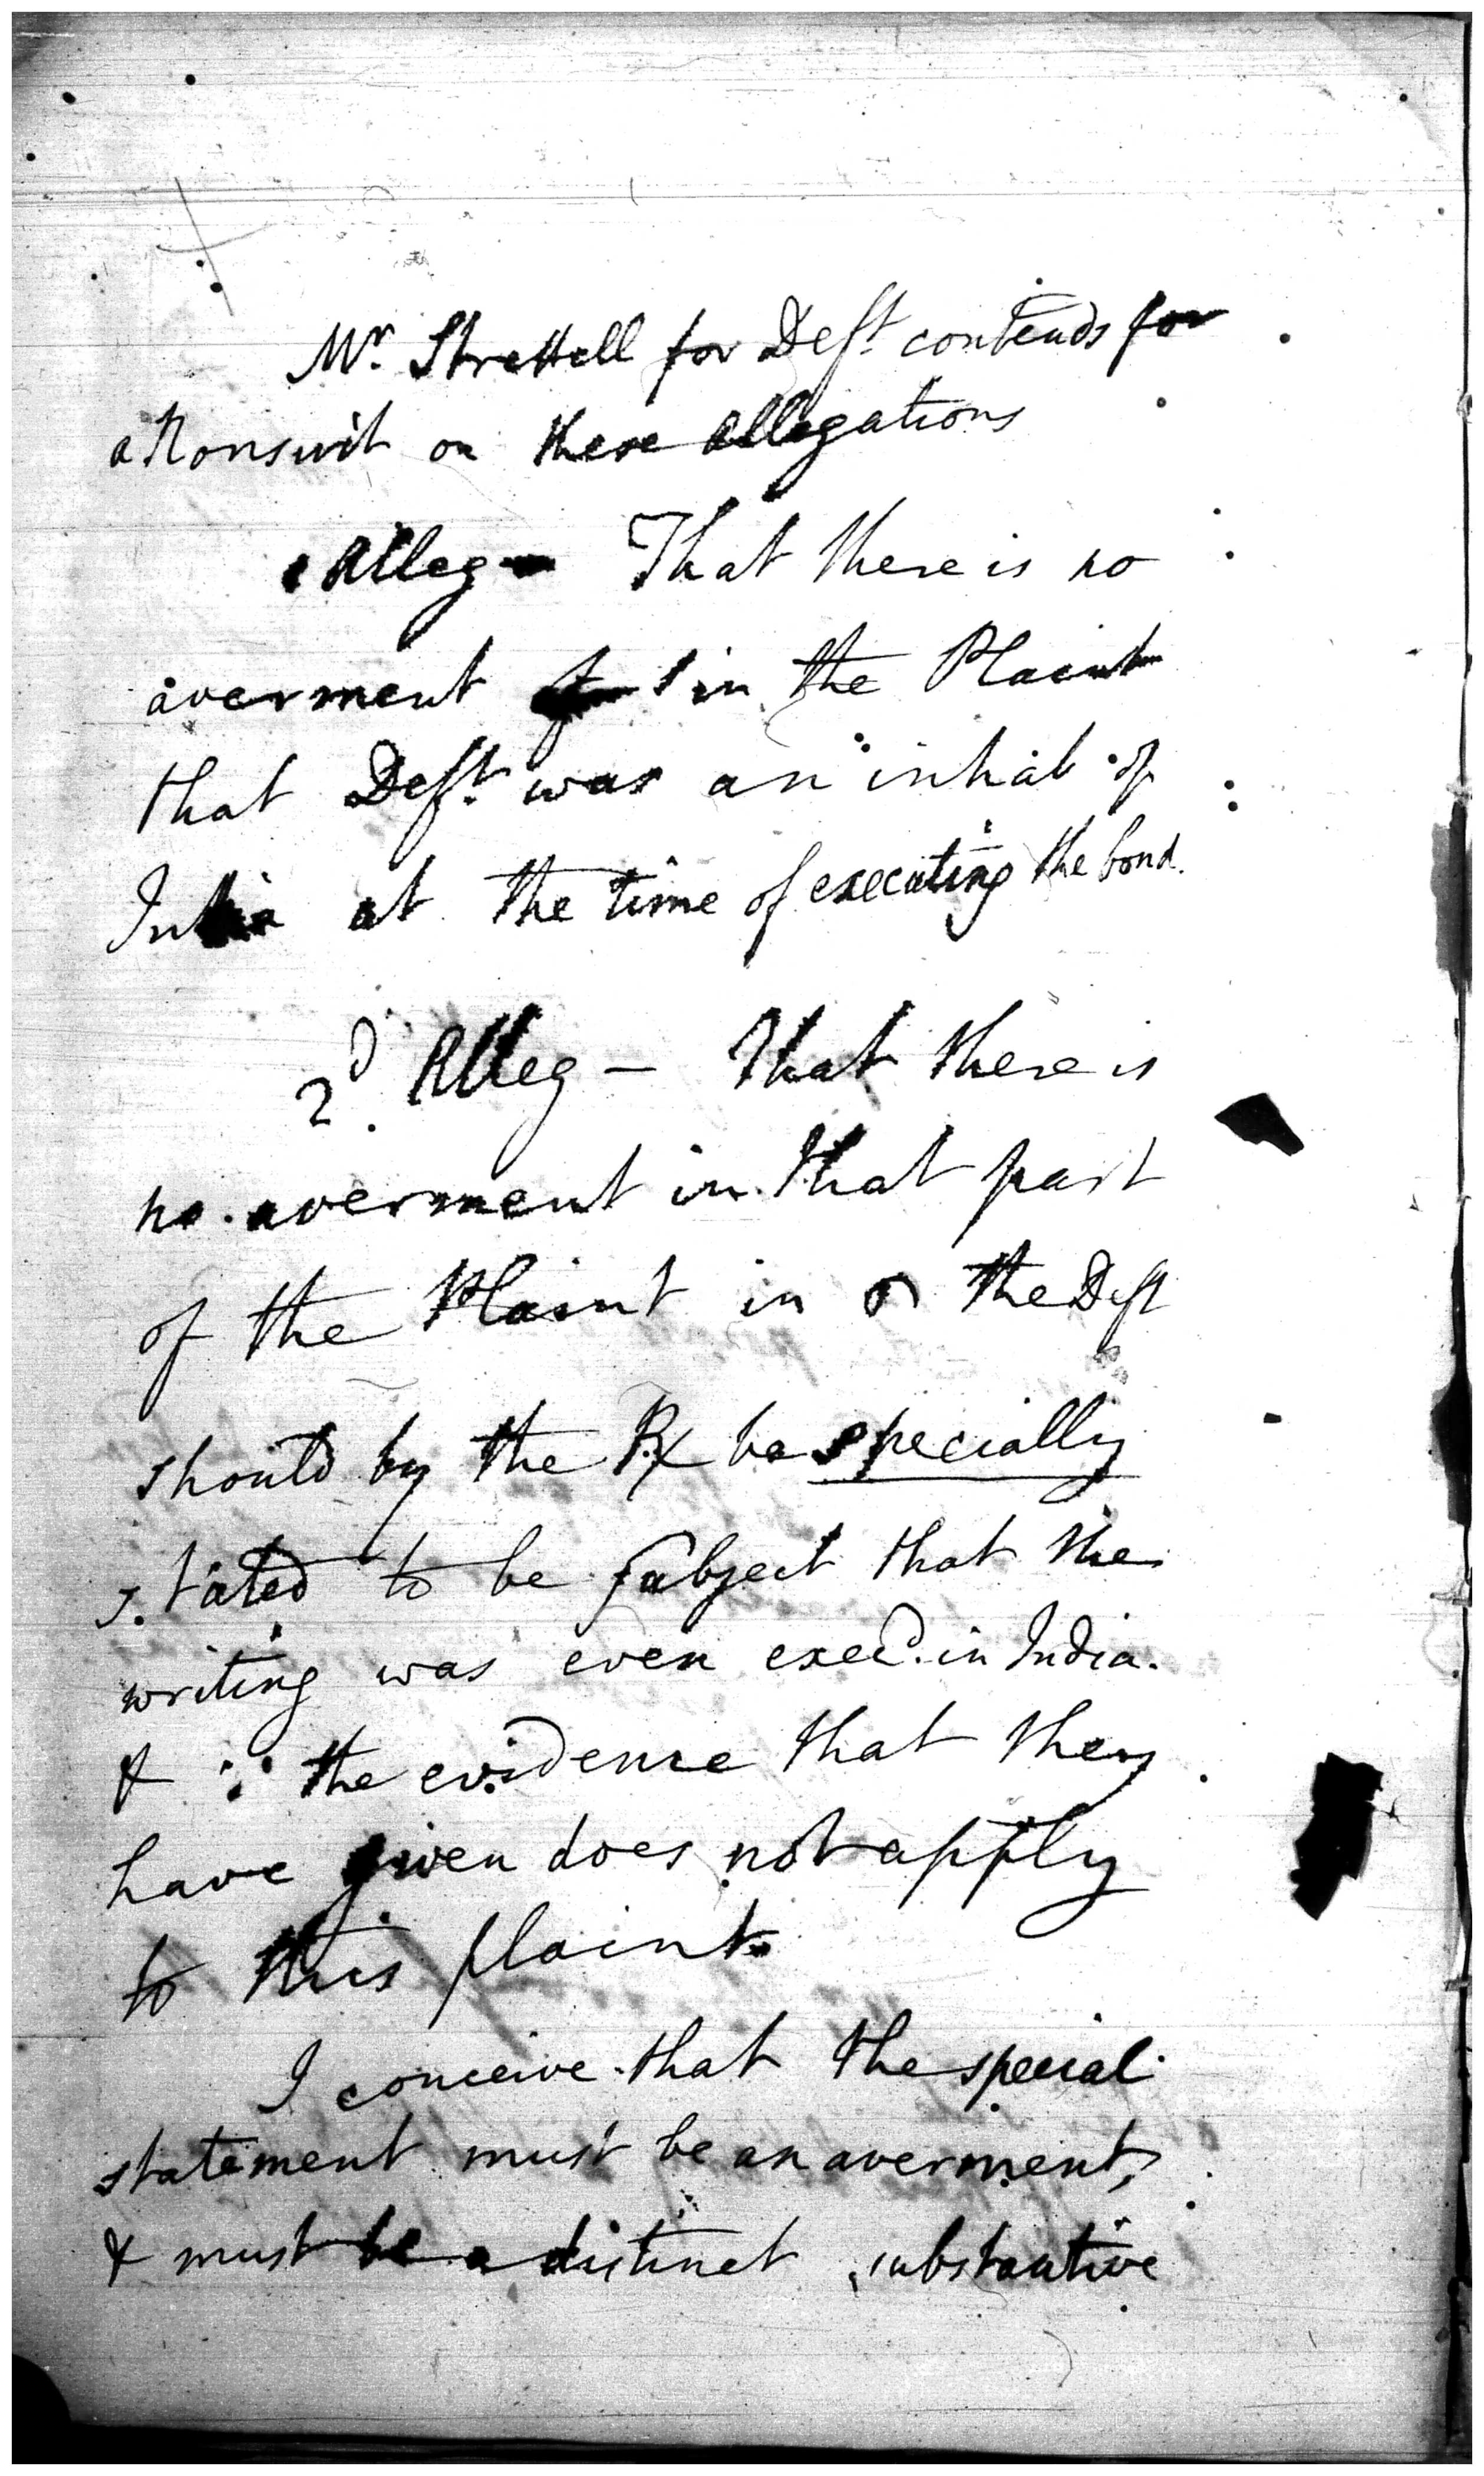 Mr. Strettell for Deft. contends for
a Nonsuit on these allegations
1 Alleg - That there is no
averment in the Plaint
that Deft. was an inhab of
India at the time of executing the bond.
2d. Alleg - That there is
no averment in that part
of the Plaint in the Deft
should by the be specially
stated to be subject that the
writing was even execd. in India.
& ∴ the evidence that they
have given does not apply
to this plaint
I conceive that the special
statement must be an averment,
& must be a distinct substantive